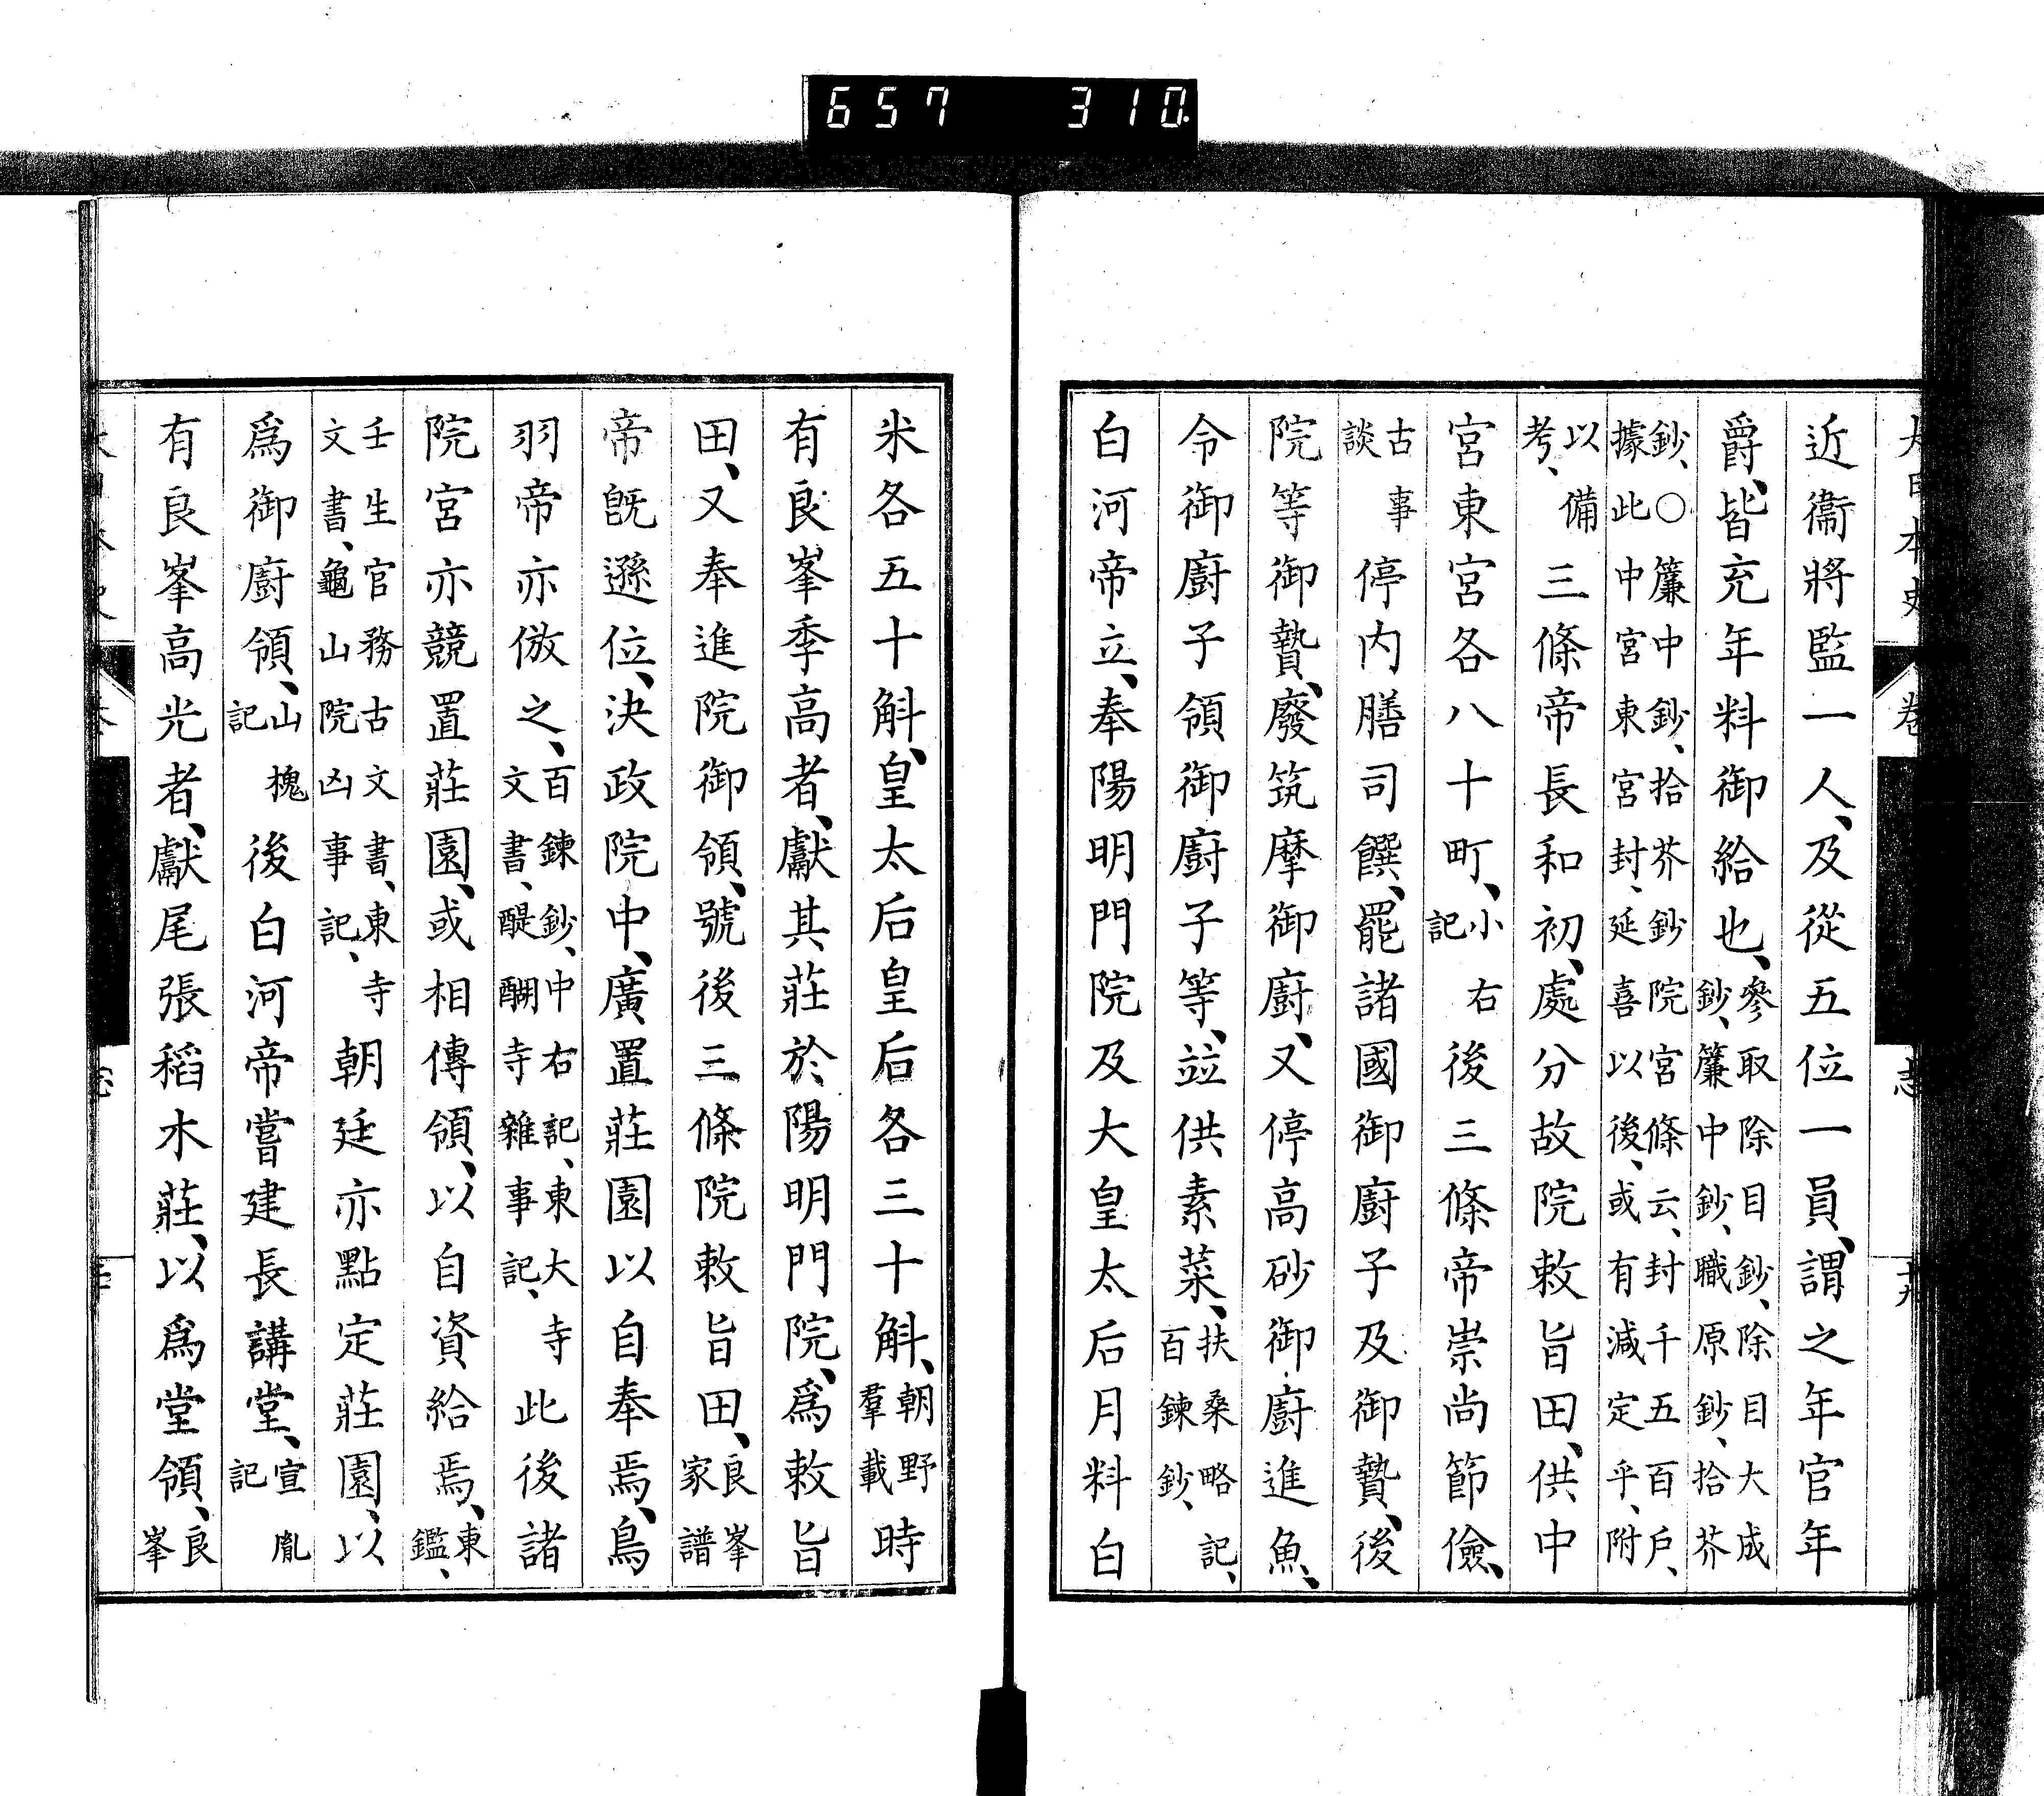 657 310
近衞將監一人、及從五位一員、謂之年官年
爵、皆充年料御給也、參取除目鈔、除目大成鈔、簾中鈔、職原鈔、拾芥
鈔、○簾中鈔、拾芥鈔院宮條云、封千五百戶、據此中宮東宮封、延喜以後、或有減定乎、附
以備考、三條帝長和初、處分故院敕旨田、供中
宮東宮各八十町、小右記後三條帝崇尚節儉、
古事談停内膳司饌、罷諸國御廚子及御贄、後
院等御贄、廢筑摩御廚、又停高砂御廚進魚、
令御廚子領御廚子等、竝供素菜、扶桑略記、百鍊鈔、
白河帝立、奉陽明門院及大皇太后月料白
米各五十斛、皇太后皇后各三十斛、朝野羣載時
有良峯季高者、獻其莊於陽明門院、爲敕旨
田、又奉進院御領、號後三條院敕旨田、良峯家譜
帝旣遜位、決政院中、廣置莊園以自奉焉、鳥
羽帝亦倣之、百鍊鈔、中右記、東大寺文書、醍醐寺雜事記、此後諸
院宮亦競置莊園、或相傳領、以自資給焉、東鑑、
壬生官務古文書、東寺文書、龜山院凶事記、朝廷亦點定莊園、以
爲御廚領、山槐記後白河帝嘗建長講堂、宣胤記
有良峯高光者、獻尾張稻木莊、以爲堂領、良峯